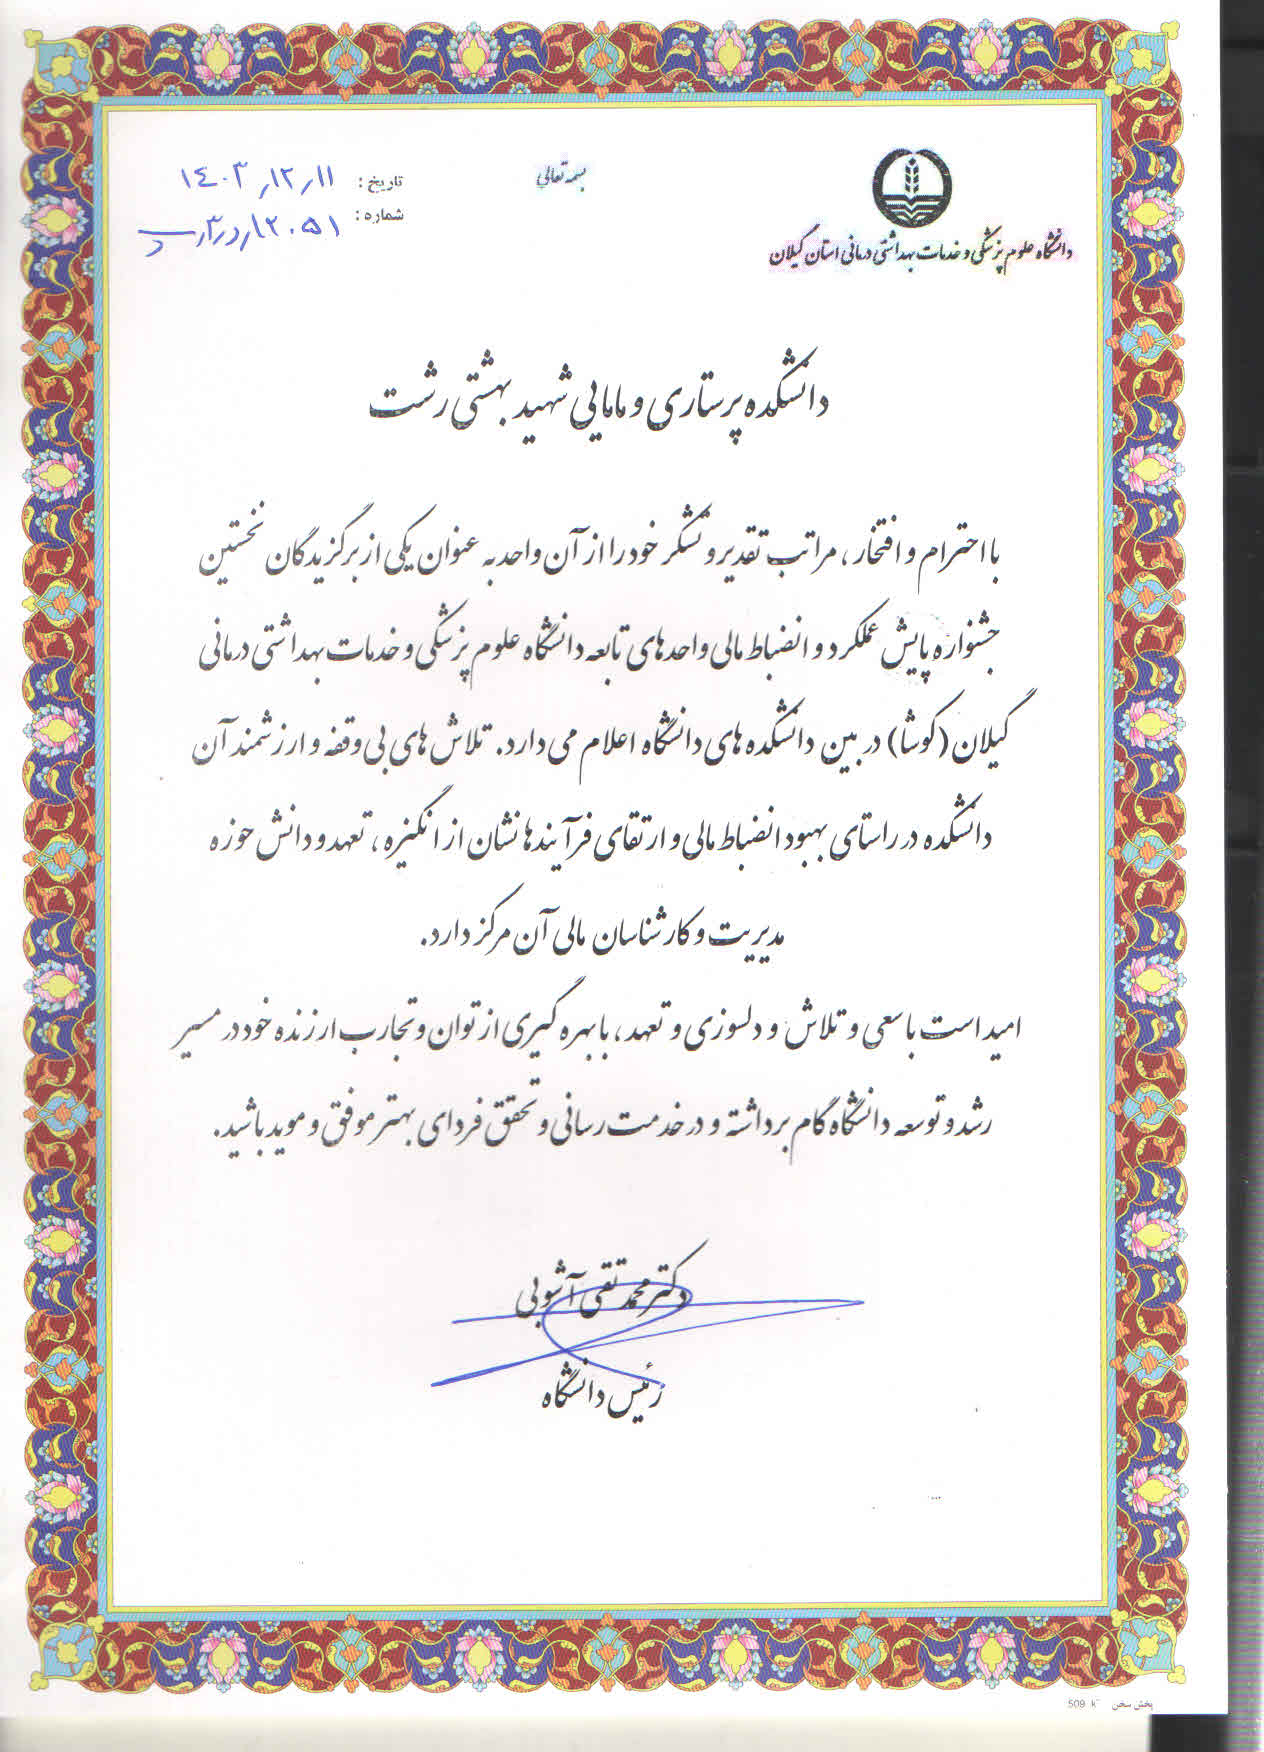 بسمه تعالی
دانشگاه علوم پزشکی و خدمات بهداشتی درمانی استان گیلان
تاریخ : ۱۴۰۳٫۱۲٫۱۱
شماره :
دانشکده پرستاری و مامایی شهید بهشتی رشت
با احترام و افتخار، مراتب تقدیر و تشکر خود را از آن واحد به عنوان یکی از برگزیدگان نخستین
جشنواره پایش عملکرد و انضباط مالی واحدهای تابعه دانشگاه علوم پزشکی و خدمات بهداشتی درمانی
گیلان (کوشا) در بین دانشکده های دانشگاه اعلام می دارد. تلاش های بی وقفه و ارزشمند آن
دانشکده در راستای بهبود انضباط مالی و ارتقای فرآیندها نشان از انگیزه، تعهد و دانش حوزه
مدیریت و کارشناسان مالی آن مرکز دارد.
امید است با سعی و تلاش و دلسوزی و تعهد، با بهره گیری از توان و تجارب ارزنده خود در مسیر
رشد و توسعه دانشگاه گام برداشته و در خدمت رسانی و تحقق فردای بهتر موفق و موید باشید.
دکتر محمد تقی آشوبی
رئیس دانشگاه
پخش سخن 509 k